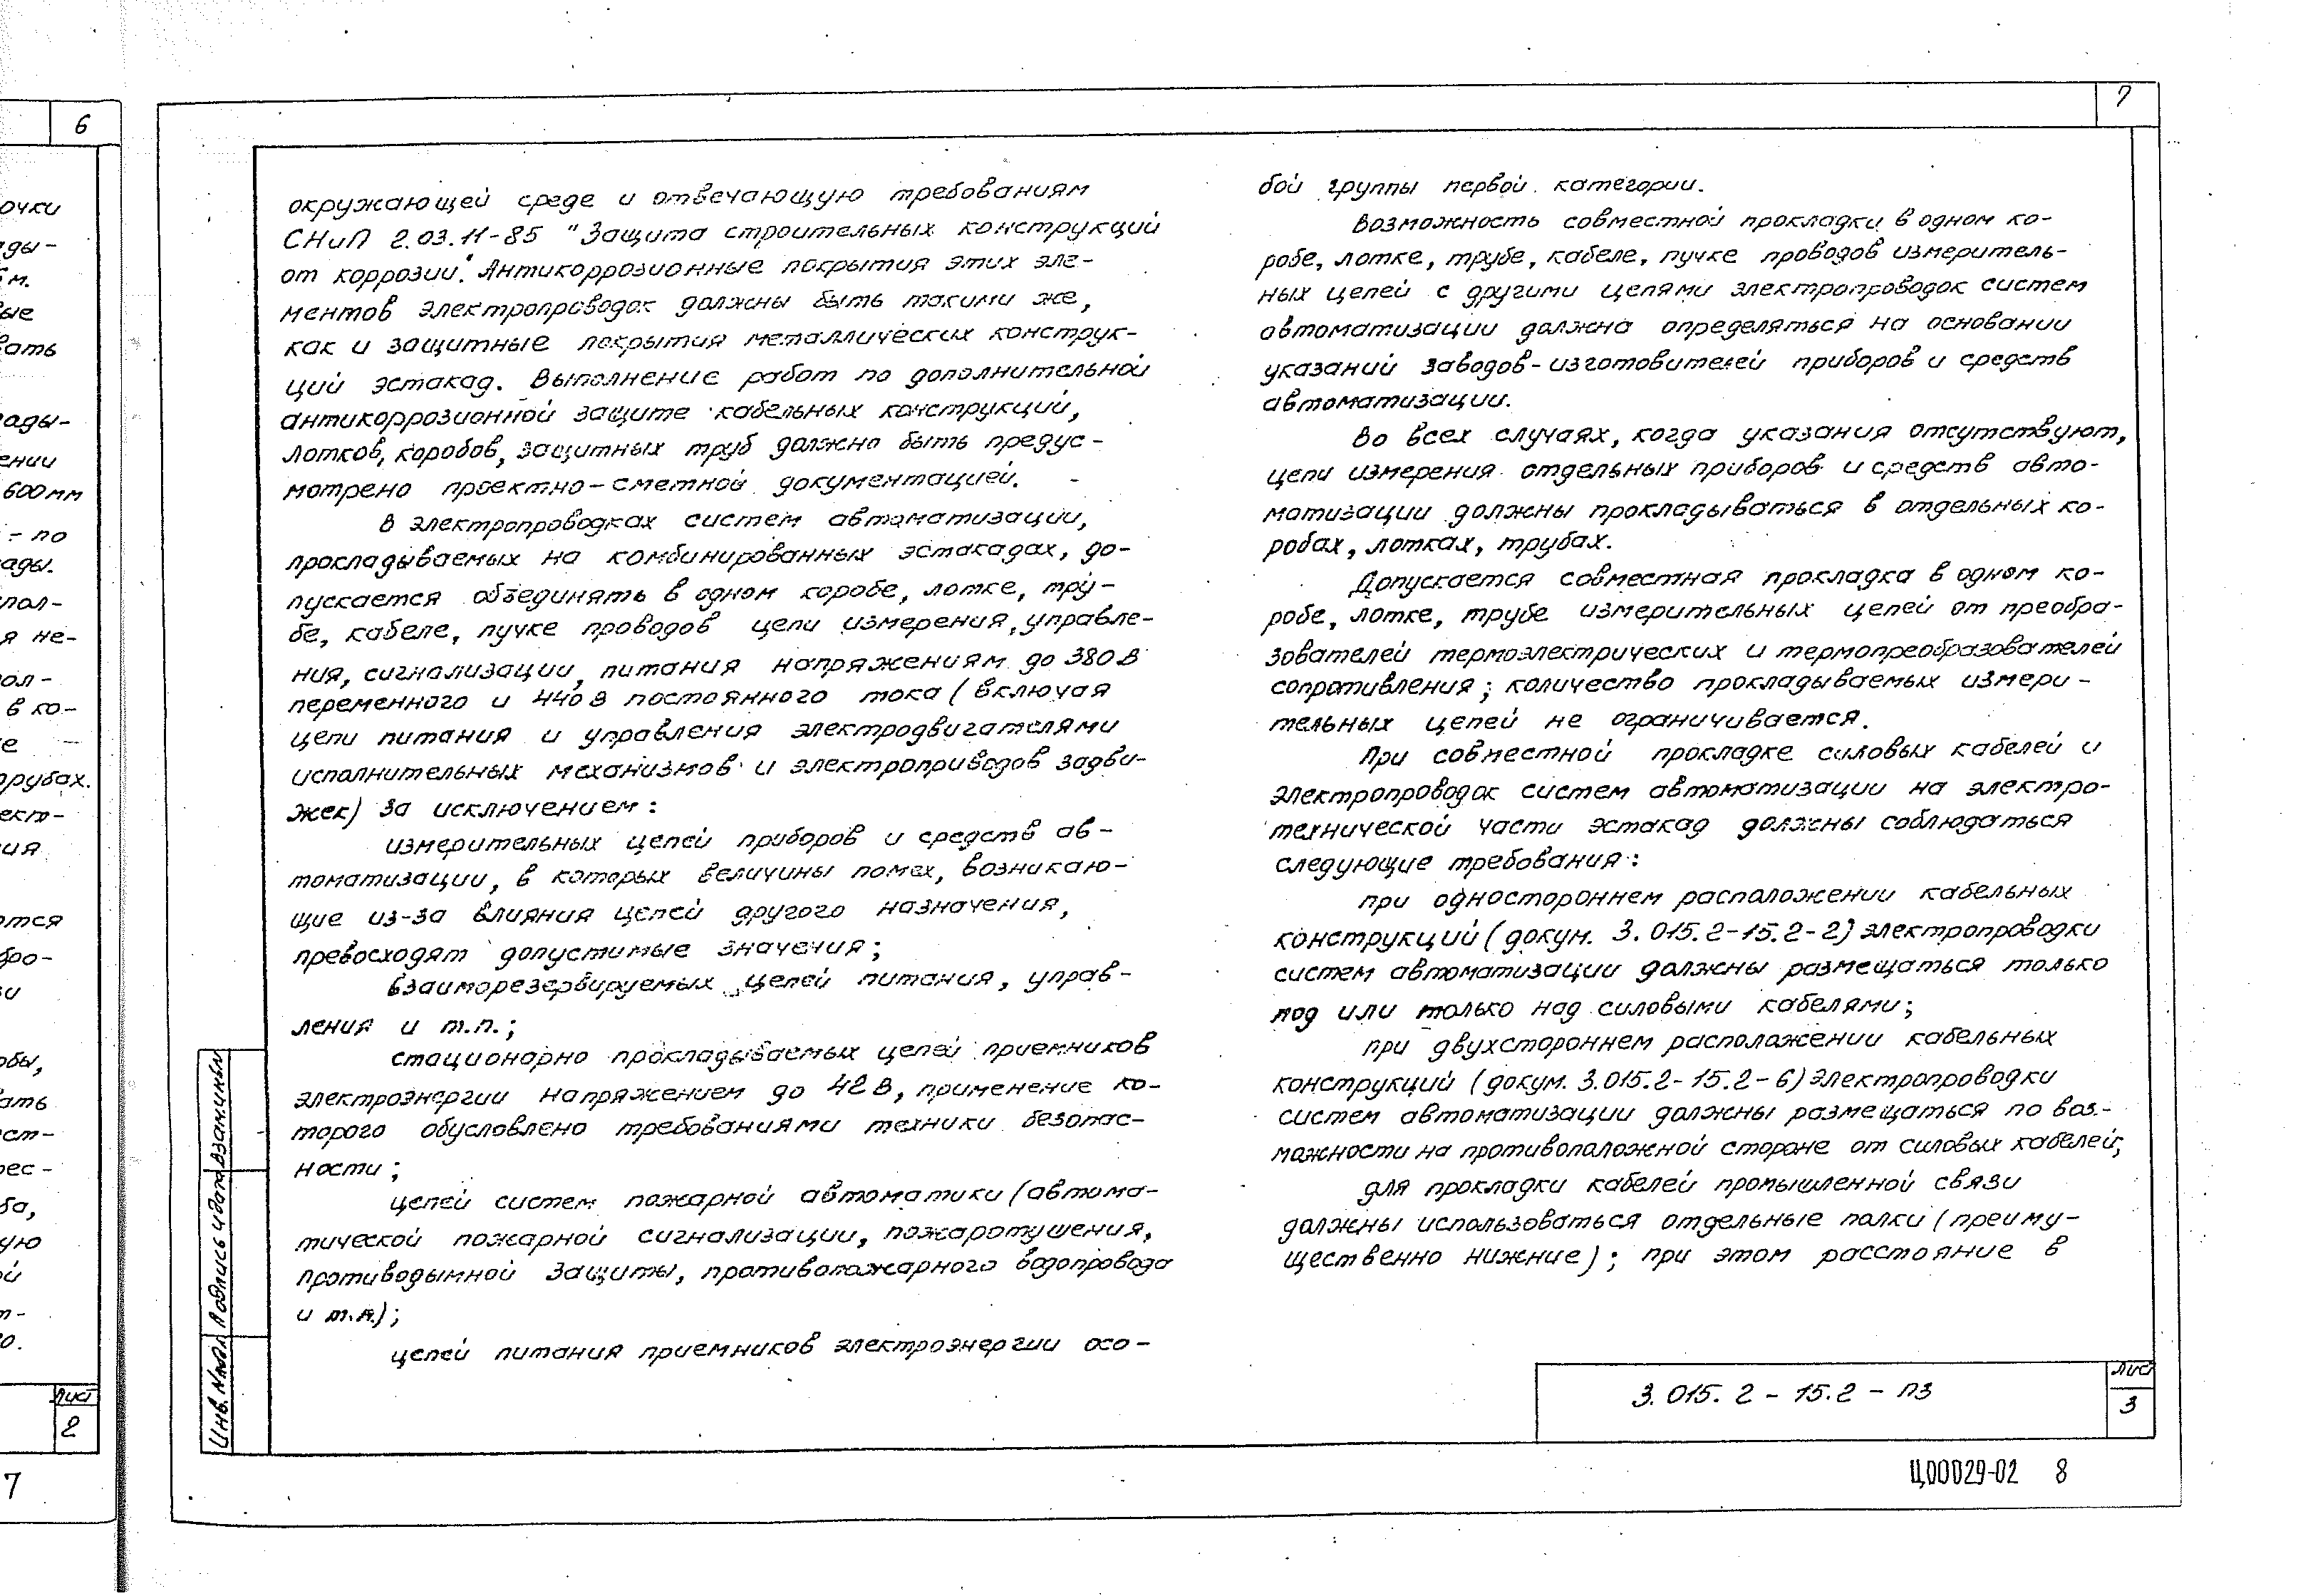 6
очки
ды-
м.
ые
вать
ады-
ении
600 мм
- по
ады.
пол-
я не-
пол-
в ко-
е
трубах.
ект-
ия
ются
бро-
и
обы,
ать
ест-
рес-
ба,
ую
ой
т-
о.
Лист
2
7
7
окружающей среде и отвечающую требованиям
СНиП 2.03.11-85 "Защита строительных конструкций
от коррозии". Антикоррозионные покрытия этих эле-
ментов электропроводок должны быть такими же,
как и защитные покрытия металлических конструк-
ций эстакад. Выполнение работ по дополнительной
антикоррозионной защите кабельных конструкций,
лотков, коробов, защитных труб должно быть предус-
мотрено проектно-сметной документацией.
В электропроводках систем автоматизации,
прокладываемых на комбинированных эстакадах, до-
пускается объединять в одном коробе, лотке, тру-
бе, кабеле, пучке проводов цепи измерения, управле-
ния, сигнализации, питания напряжениям до 380 В
переменного и 440 В постоянного тока (включая
цепи питания и управления электродвигателями
исполнительных механизмов и электроприводов задви-
жек) за исключением:
измерительных цепей приборов и средств ав-
томатизации, в которых величины помех, возникаю-
щие из-за влияния цепей другого назначения,
превосходят допустимые значения;
взаиморезервируемых цепей питания, управ-
ления и т.п.;
стационарно прокладываемых цепей приемников
электроэнергии напряжением до 42 В, применение ко-
торого обусловлено требованиями техники безопас-
ности;
цепей систем пожарной автоматики (автома-
тической пожарной сигнализации, пожаротушения,
противодымной защиты, противопожарного водопровода
и т.п.);
цепей питания приемников электроэнергии осо-
бой группы первой категории.
Возможность совместной прокладки в одном ко-
робе, лотке, трубе, кабеле, пучке проводов измеритель-
ных цепей с другими цепями электропроводок систем
автоматизации должна определяться на основании
указаний заводов-изготовителей приборов и средств
автоматизации.
Во всех случаях, когда указания отсутствуют,
цепи измерения отдельных приборов и средств авто-
матизации должны прокладываться в отдельных ко-
робах, лотках, трубах.
Допускается совместная прокладка в одном ко-
робе, лотке, трубе измерительных цепей от преобра-
зователей термоэлектрических и термопреобразователей
сопротивления; количество прокладываемых измери-
тельных цепей не ограничивается.
При совместной прокладке силовых кабелей и
электропроводок систем автоматизации на электро-
технической части эстакад должны соблюдаться
следующие требования:
при одностороннем расположении кабельных
конструкций (докум. 3.015.2-15.2-2) электропроводки
систем автоматизации должны размещаться только
под или только над силовыми кабелями;
при двухстороннем расположении кабельных
конструкций (докум. 3.015.2-15.2-6) электропроводки
систем автоматизации должны размещаться по воз-
можности на противоположной стороне от силовых кабелей;
для прокладки кабелей промышленной связи
должны использоваться отдельные полки (преиму-
щественно нижние); при этом расстояние в
Взам.инв.№
Подпись и дата
Инв.№ подл.
3.015.2-15.2-ПЗ
Лист
3
Ц00029-02 8